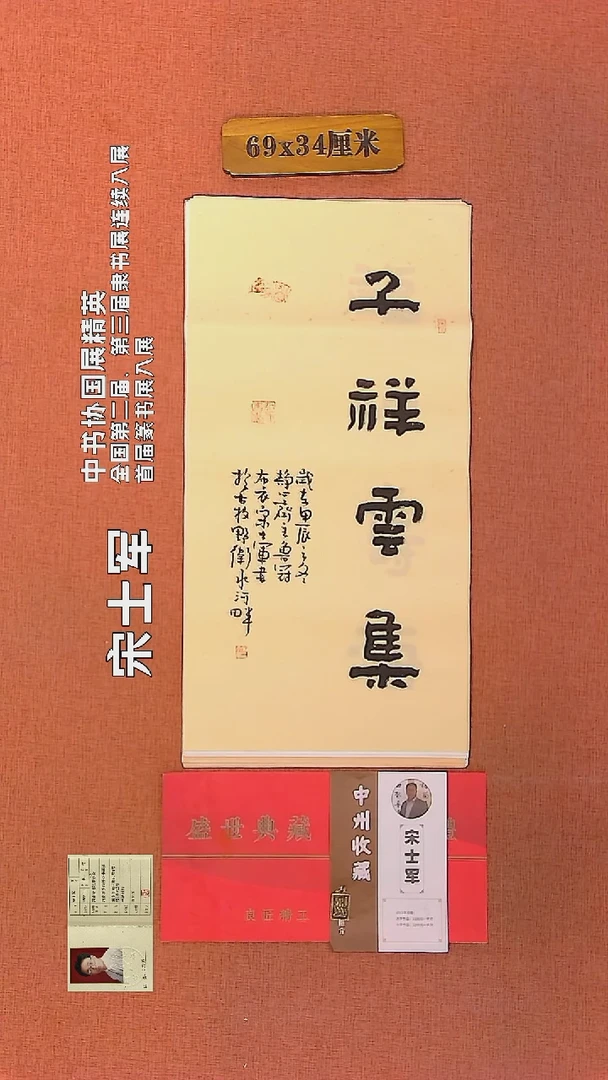 69x34厘米
千祥雲集
歲在甲辰之冬
齋主魯冠
布衣宋士軍書
於古牧野衛水河畔
中书协国展精英
全国第二届、第三届隶书展连续入展
首届篆书展入展
宋士军
盛世典藏
良匠精工
中州收藏
宋士军
禮